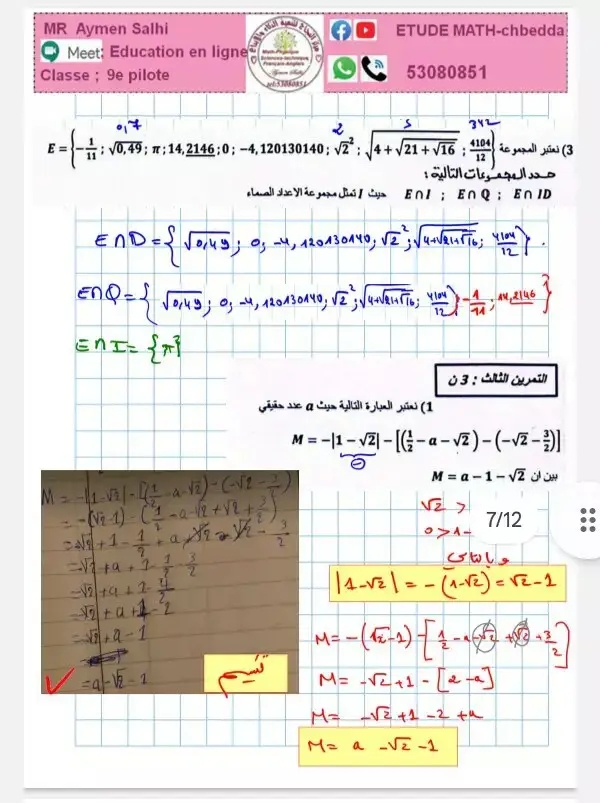 MR Aymen Salhi
Meet: Education en ligne
Classe ; 9e pilote
ETUDE MATH-chbedda
53080851
0,7 2 5 342
3) نعتبر المجموعة E = {-1/11 ; √0,49 ; π ; 14,2146 ; 0 ; -4,120130140 ; √2² ; √(4+√(21+√16)) ; 4104/12}
حدد المجموعات التالية :
E∩I ; E∩Q ; E∩ID حيث I تمثل مجموعة الاعداد الصماء
E∩D = { √0,49 ; 0, -4,120130140 ; √2² ; √(4+√(21+√16)) ; 4104/12 } .
E∩Q = { √0,49 ; 0, -4,120130140 ; √2² ; √(4+√(21+√16)) ; 4104/12 ; -1/11 ; 14,2146 }
E∩I = {π}
التمرين الثالث : 3 ن
1) نعتبر العبارة التالية حيث a عدد حقيقي
M = -|1 - √2| - [(1/2 - a - √2) - (-√2 - 3/2)]
بين ان M = a - 1 - √2
M = -|1-√2| - [(1/2 - a - √2) - (-√2 - 3/2)]
= -(√2-1) - (1/2 - a - √2 + √2 + 3/2)
= -√2 + 1 - 1/2 + a + √2 - √2 - 3/2
= -√2 + a + 1 - 1/2 - 3/2
= -√2 + a + 1 - 4/2
= -√2 + a + 1 - 2
= -√2 + a - 1
= a - √2 - 1
√2 >
0 > 1 -
7/12
وبالتالي
|1-√2| = -(1-√2) = √2-1
M = -(√2-1) - [1/2 - a - √2 + √2 + 3/2]
M = -√2 + 1 - [2 - a]
M = -√2 + 1 - 2 + a
M = a - √2 - 1